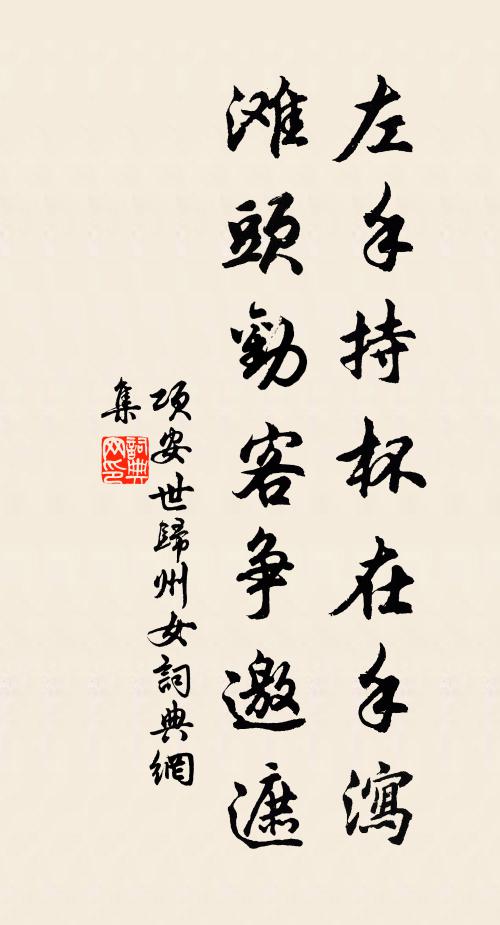 左手持杯在手瀉
滩頭勸客争邀遮
项安世歸州女詞典網
集
詞典网印